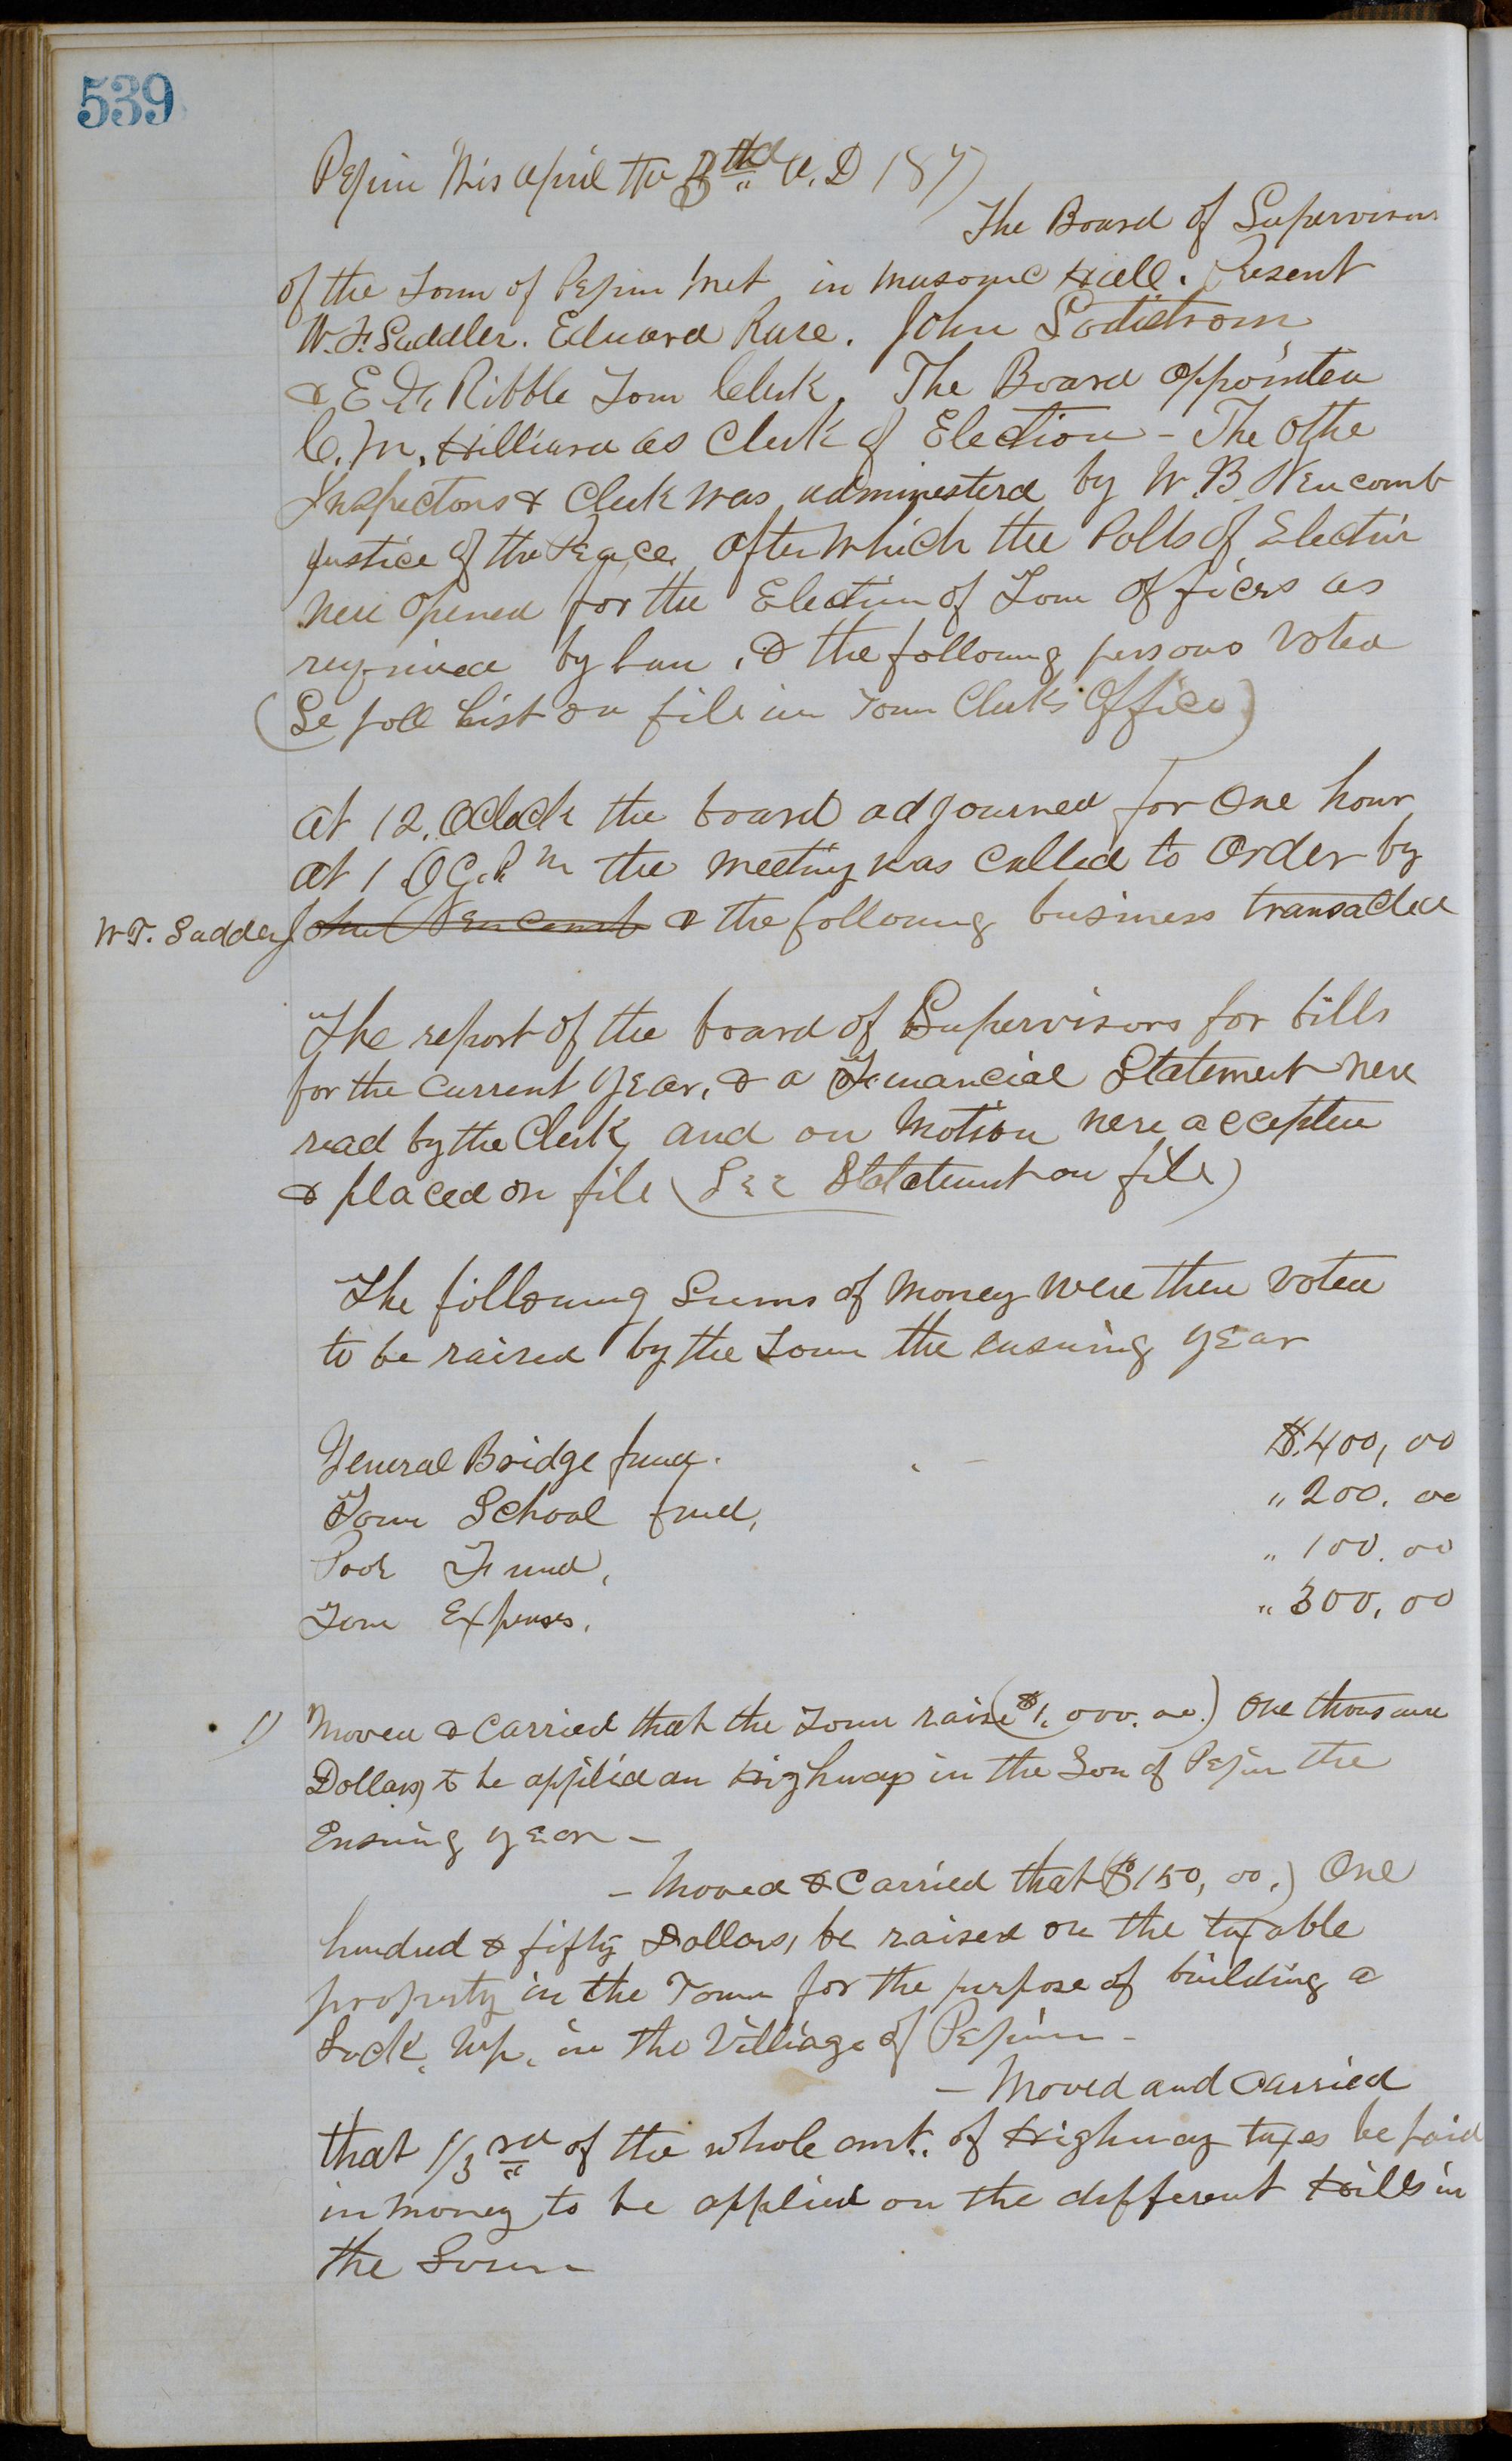 539
Pepin Wis April the 3rd A.D 187
The Board of Supervisors
of the Town of Pepin Met in Masonic Hall. Present
W.F. Saddler. Edward Ruse. John Sodistrom
& E.F. Ribble Town Clerk. The Board Appointed
C. M. Hilliard as Clerk of Election - The Othe
Inspectors & Clerk was administerd by W. B. Newcomb
Justice of the Peace. After Which the Polls of Election
were opened for the Election of Town Officers as
required by Law, & the following persons voted
(Se poll List on file in Town Clerks Office)
At 12. Oclock the board adjourned for One hour
At 1 O C. P M the meeting was called to order by
W.F. Saddler John Newcomb & the following business transacted
The report of the board of Supervisors for bills
for the current year, & a Financial Statement were
read by the Clerk, and on Motion were accepted
& placed on file (See Statement on file)
The following Sums of Money were then voted
to be raised by the Town the ensuing year
General Bridge fund. $.400,00
Town School fund, " 200.00
Poor Fund, " 100.00
Town Expenses, " 300,00
1) Moved & Carried that the Town raise ($1,000.00.) One thousand
Dollars, to be applied on Highways in the Town of Pepin the
Ensuing year -
- Moved & Carried that ($150,00.) One
hundred & fifty Dollars, be raised on the taxable
property in the Town for the purpose of building a
Lock. Up. in the Villiage of Pepin -
- Moved and Carried
that 1/3 rd of the whole amt. of Highway taxes be paid
in Money to be applied on the different Hills in
the Town